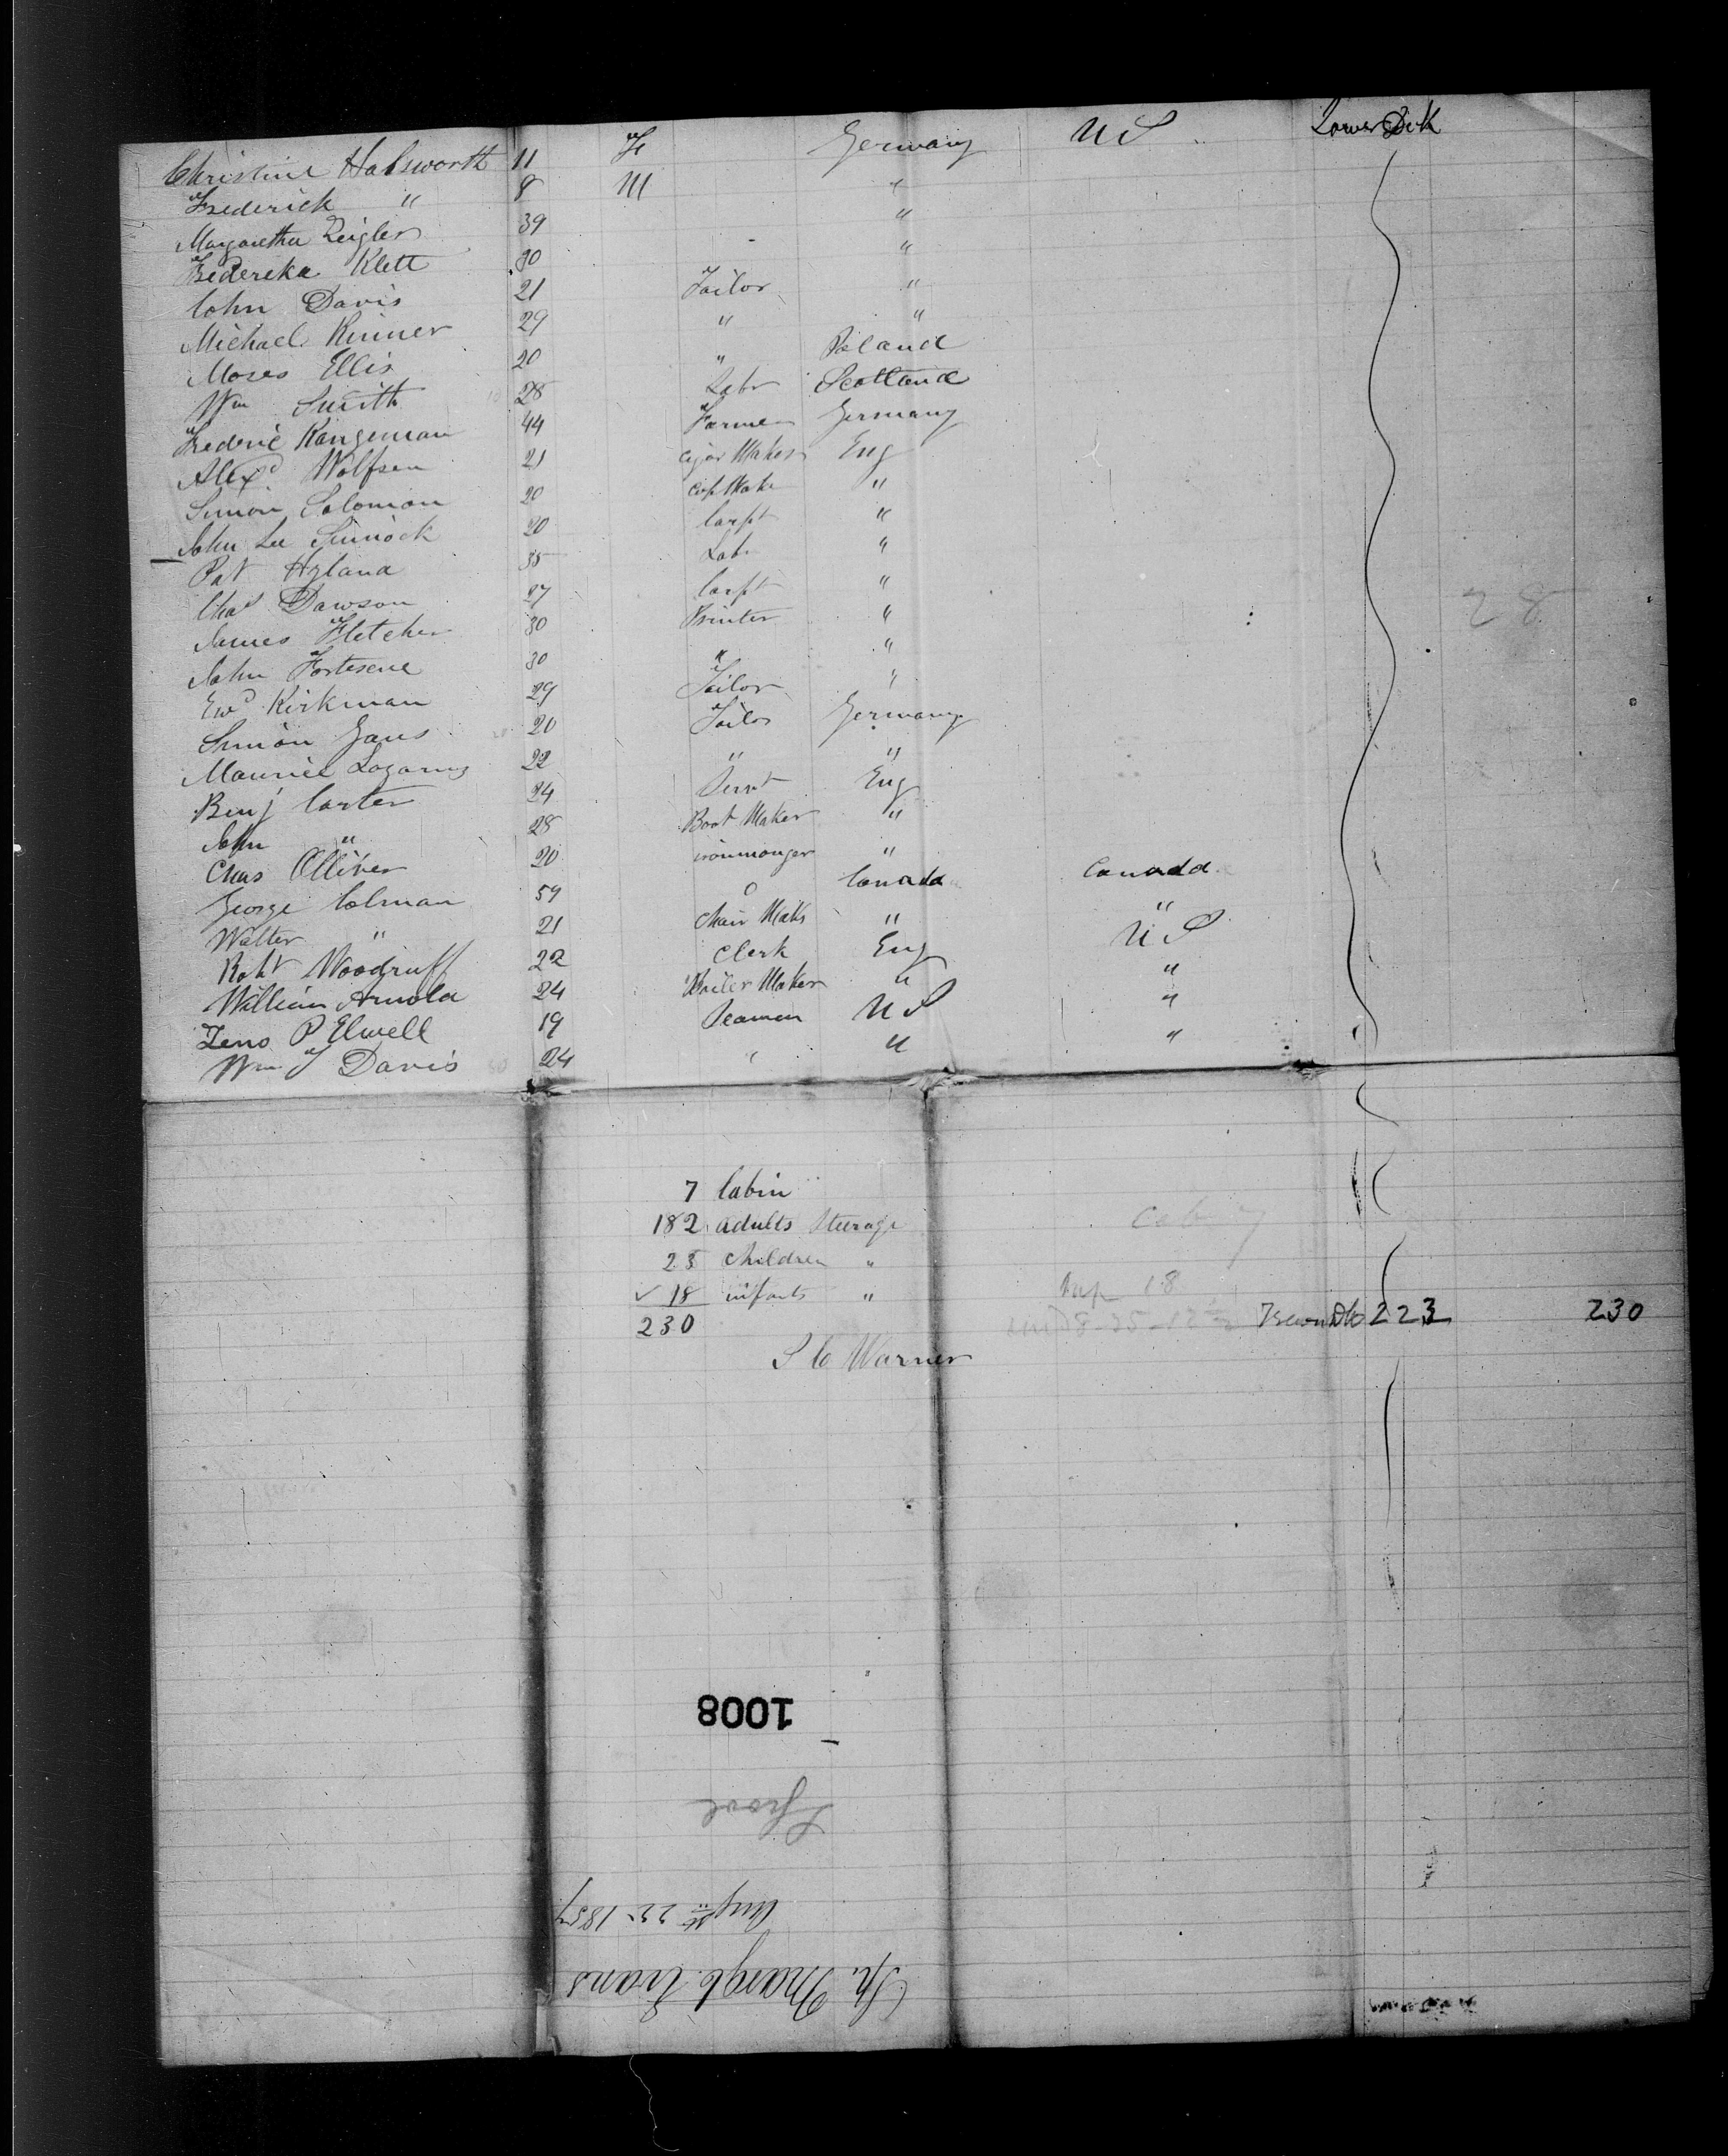 Christine Habsworth 11 F Germany U S Lower Deck
Frederick " 8 M "
Margaretha Zeigler 39 "
Federeka Klett 30 "
John Davis 21 Tailor "
Michael Rinner 29 " "
Moses Ellis 20 " Poland
Wm Smith 28 Labr Scotland
Frederic Kangeman 44 Farmer Germany
Alexd Wolfsen 21 Cigar Maker Eng
Simon Solomon 20 Cap Make "
John Lee Sinnock 20 Carpt "
Pat Hyland 35 Labr "
Chas Dawson 27 Carpt "
James Fletcher 30 Printer "
John Fortescue 30 " "
Ewd Kirkman 29 Tailor "
Simon Gans 20 Tailor Germany
Maurice Lazarus 22 " "
Benj Carter 24 Servt Eng
John " 28 Boot Maker "
Chas Olliver 20 ironmonger "
George Colman 59 Canada Canada
Walter " 21 Chair Makr " "
Robt Woodruff 22 Clerk Eng U S
William Arnold 24 Boiler Maker " "
Zeno P Elwell 19 Seaman U S "
Wm J Davis 24 " " "
28
7 Cabin
182 adults Steerage
23 Children "
✓ 18 infants "
230
223 230
S C Warner
1008
Augst 22 1857
Sh. Margt. Evans